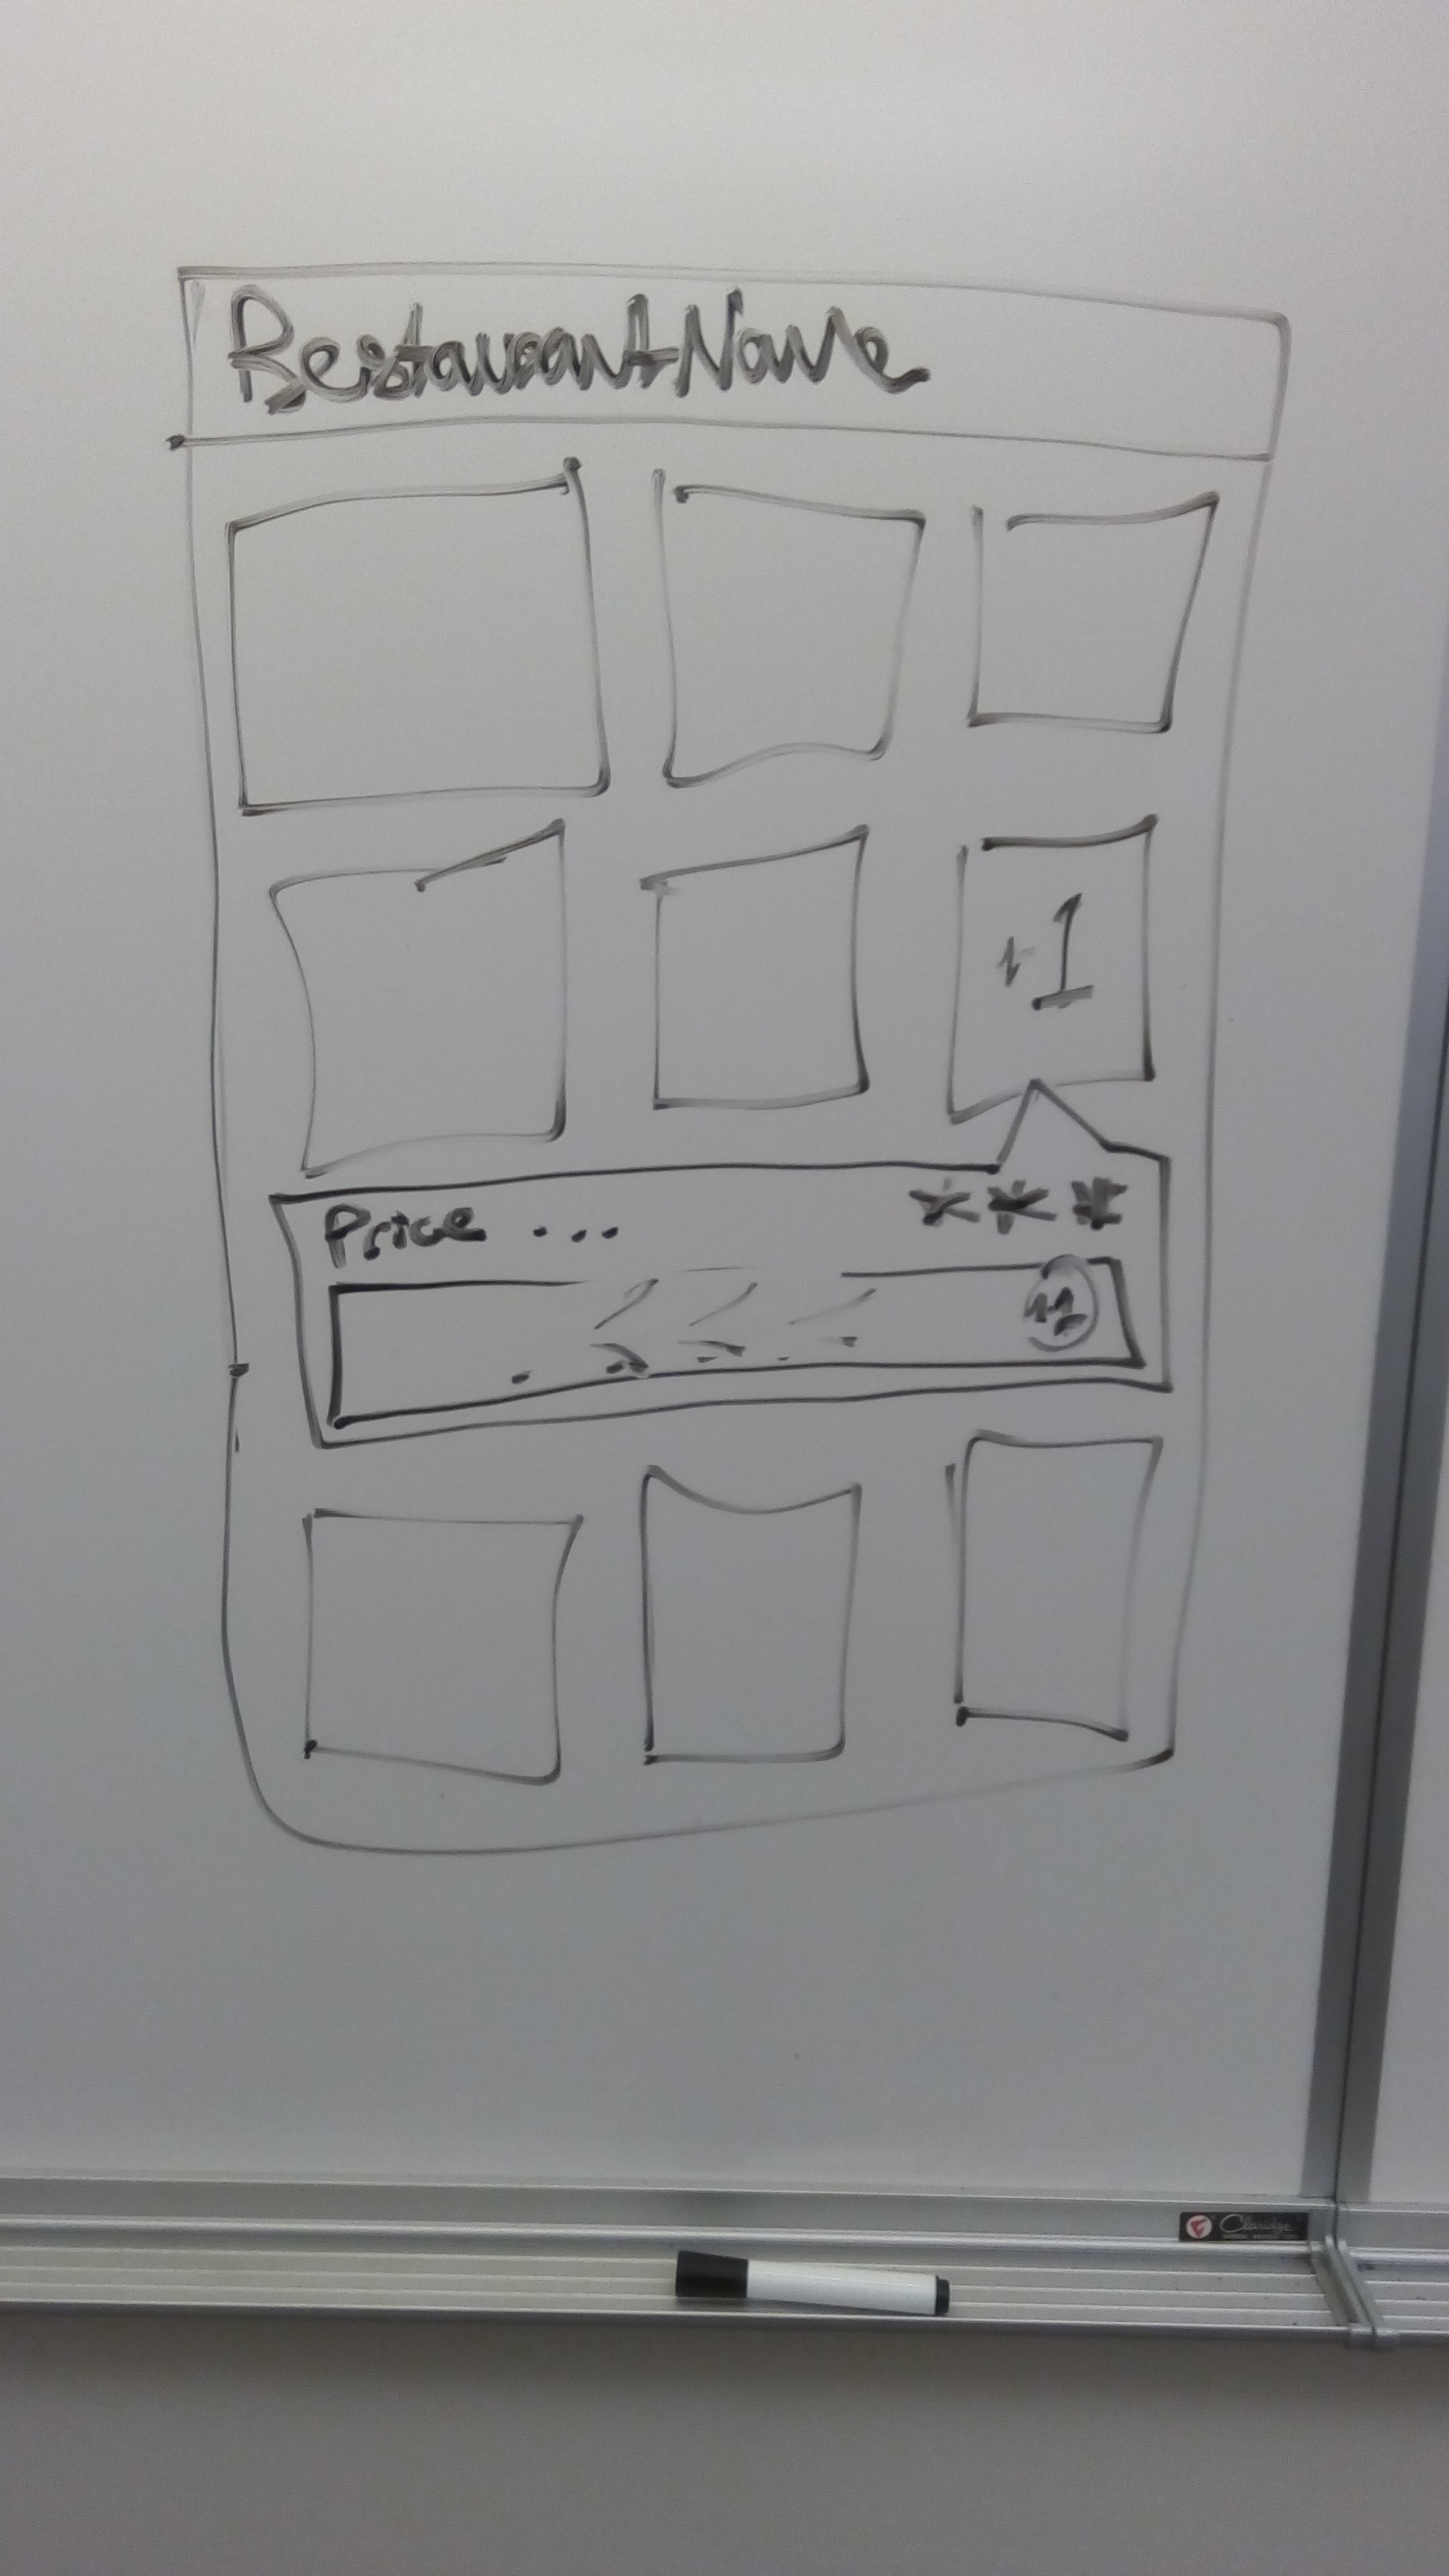 Restaurant Name
+1
Price ... ***
+1
Claridge